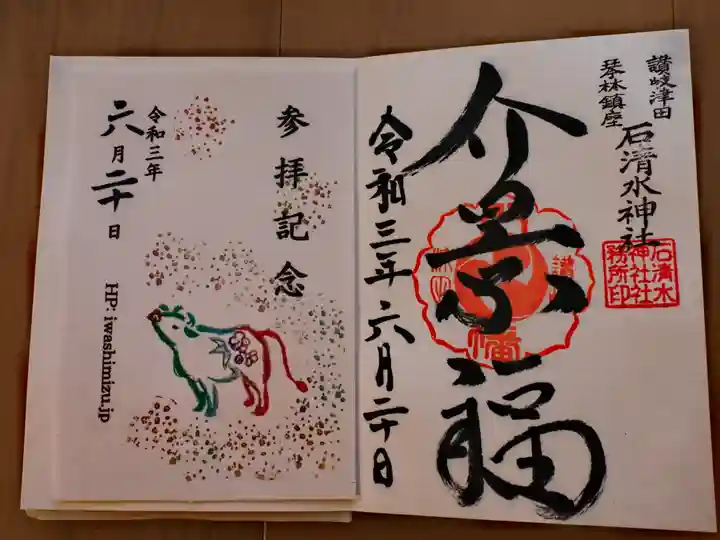 讃岐津田
琴林鎮座
石清水神社
石清水
神社社
務所印
介景福
令和三年六月二十日
参拝記念
令和三年
六月二十日
HP: iwashimizu.jp